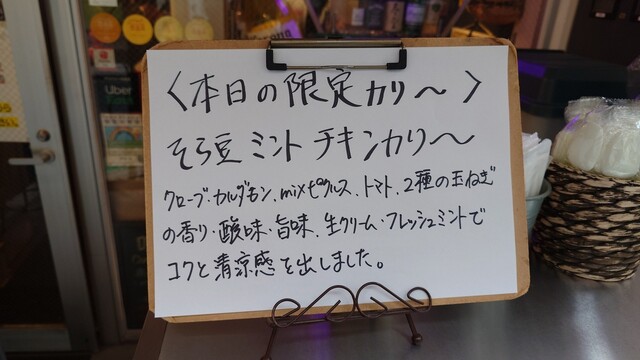 〈本日の限定カリ〜〉
そら豆ミントチキンカリ〜
クローブ・カルダモン、mixピクルス、トマト、2種の玉ねぎ
の香り・酸味・旨味、生クリーム・フレッシュミントで
コクと清涼感を出しました。
Uber